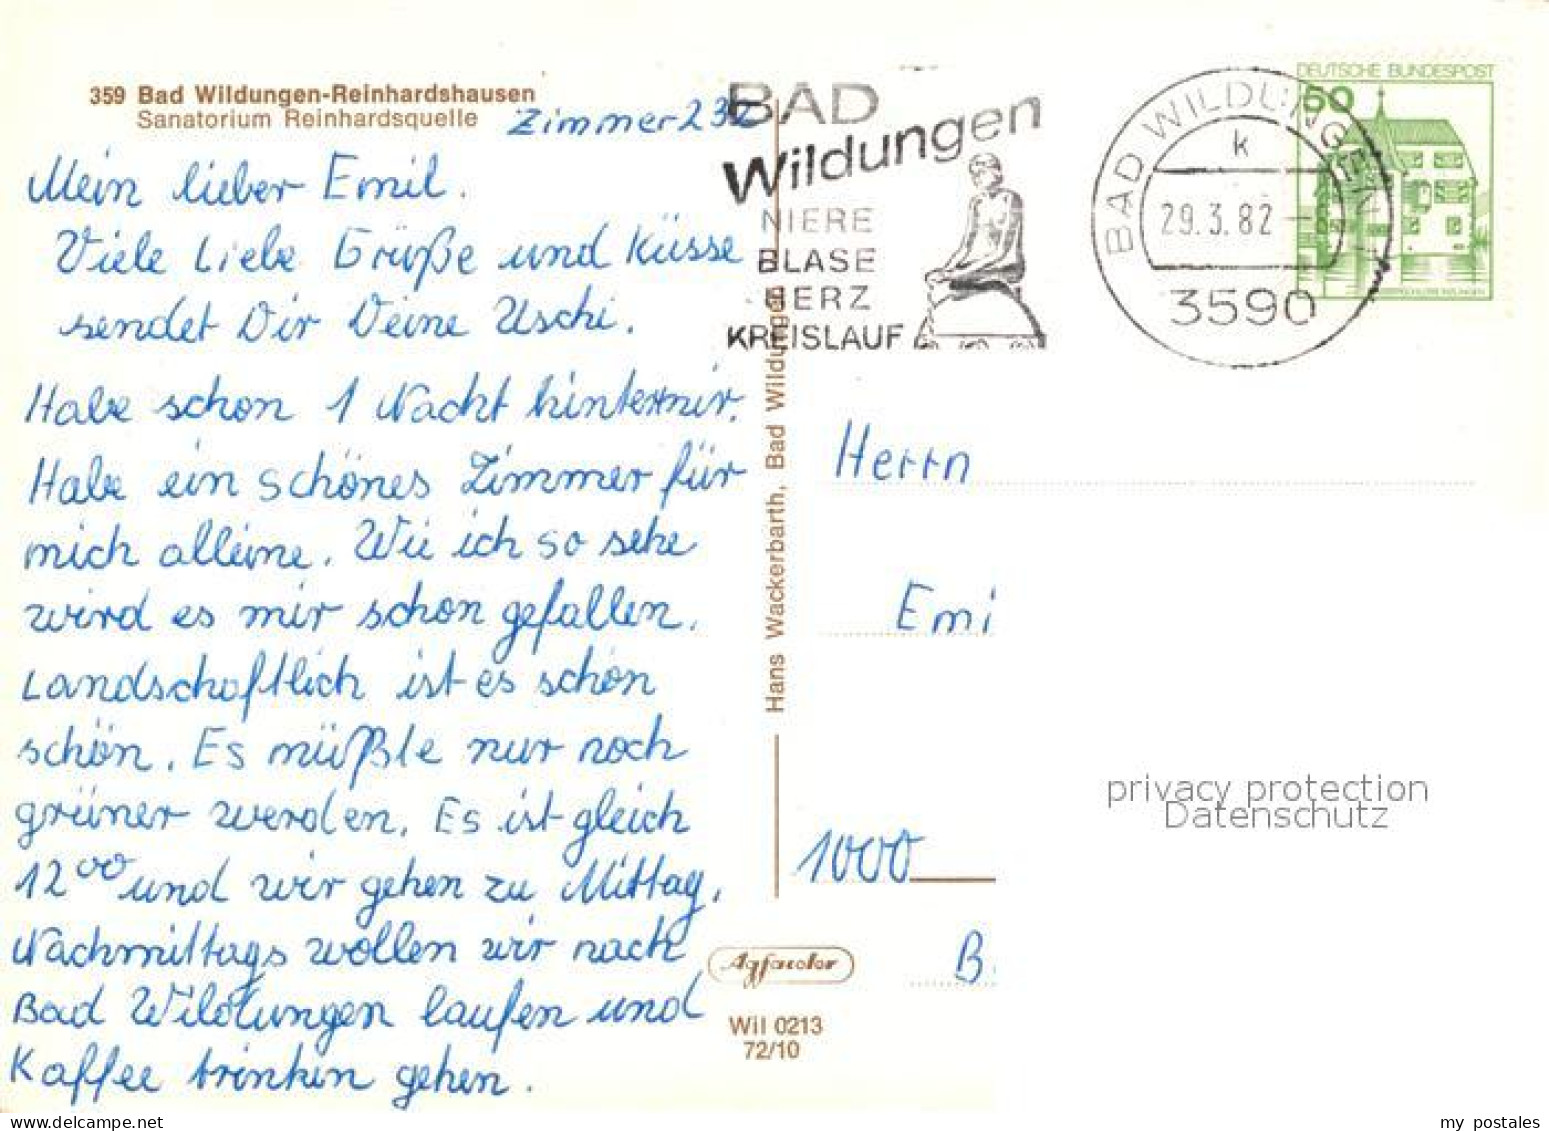 359 Bad Wildungen-Reinhardshausen
Sanatorium Reinhardsquelle
Zimmer 232
Mein lieber Emil.
Viele Liebe Grüße und Küsse
sendet Dir Deine Uschi.
Habe schon 1 Nacht hintermir.
Habe ein schönes Zimmer für
mich alleine. Wie ich so sehe
wird es mir schon gefallen.
Landschaftlich ist es schön
schön. Es müßte nur noch
grüner werden. Es ist gleich
12⁰⁰ und wir gehen zu Mittag,
Nachmittags wollen wir nach
Bad Wildungen laufen und
Kaffee trinken gehen.
BAD
Wildungen
NIERE
BLASE
HERZ
KREISLAUF
BAD WILDUNGEN
k
29.3.82
3590
DEUTSCHE BUNDESPOST
50
Hans Wackerbarth, Bad Wildungen
Herrn
Emi
1000
B
Agfacolor
Wil 0213
72/10
privacy protection
Datenschutz
my postales